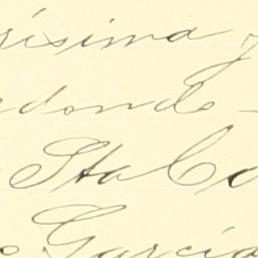 rísima y
edondo
Sta Co
o García